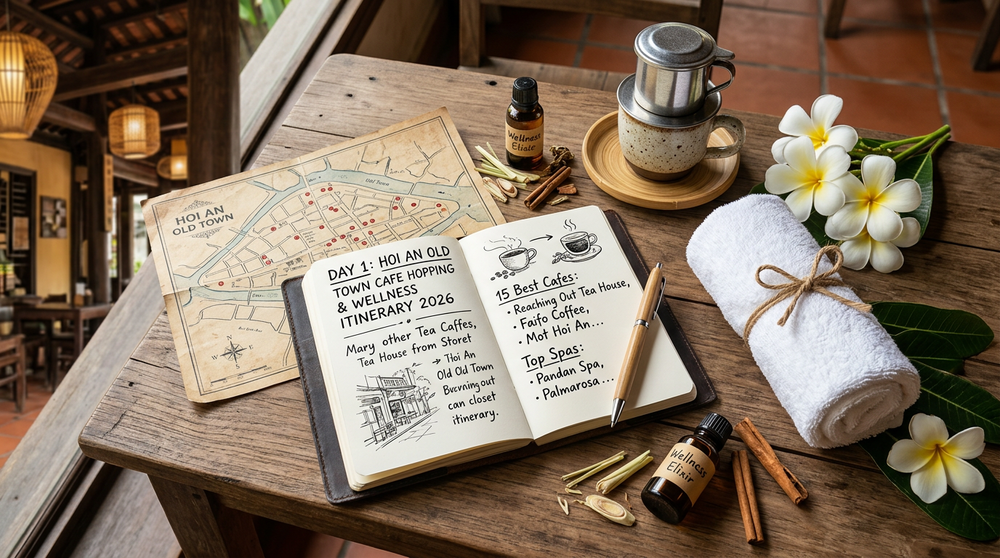 HOI AN
OLD TOWN
DAY 1: HOI AN OLD
TOWN CAFE HOPPING
& WELLNESS
ITINERARY 2026
Mary other Tea Caffes,
Tea House from Storet
→ Hoi An
Old Old Town
can closet
itinerary.
15 Best Cafes:
• Reaching Out Tea House,
• Faifo Coffee,
• Mot Hoi An...
Top Spas:
• Pandan Spa,
• Palmarosa...
Wellness
Elixir
Wellness
Elixir
N
W
E
S